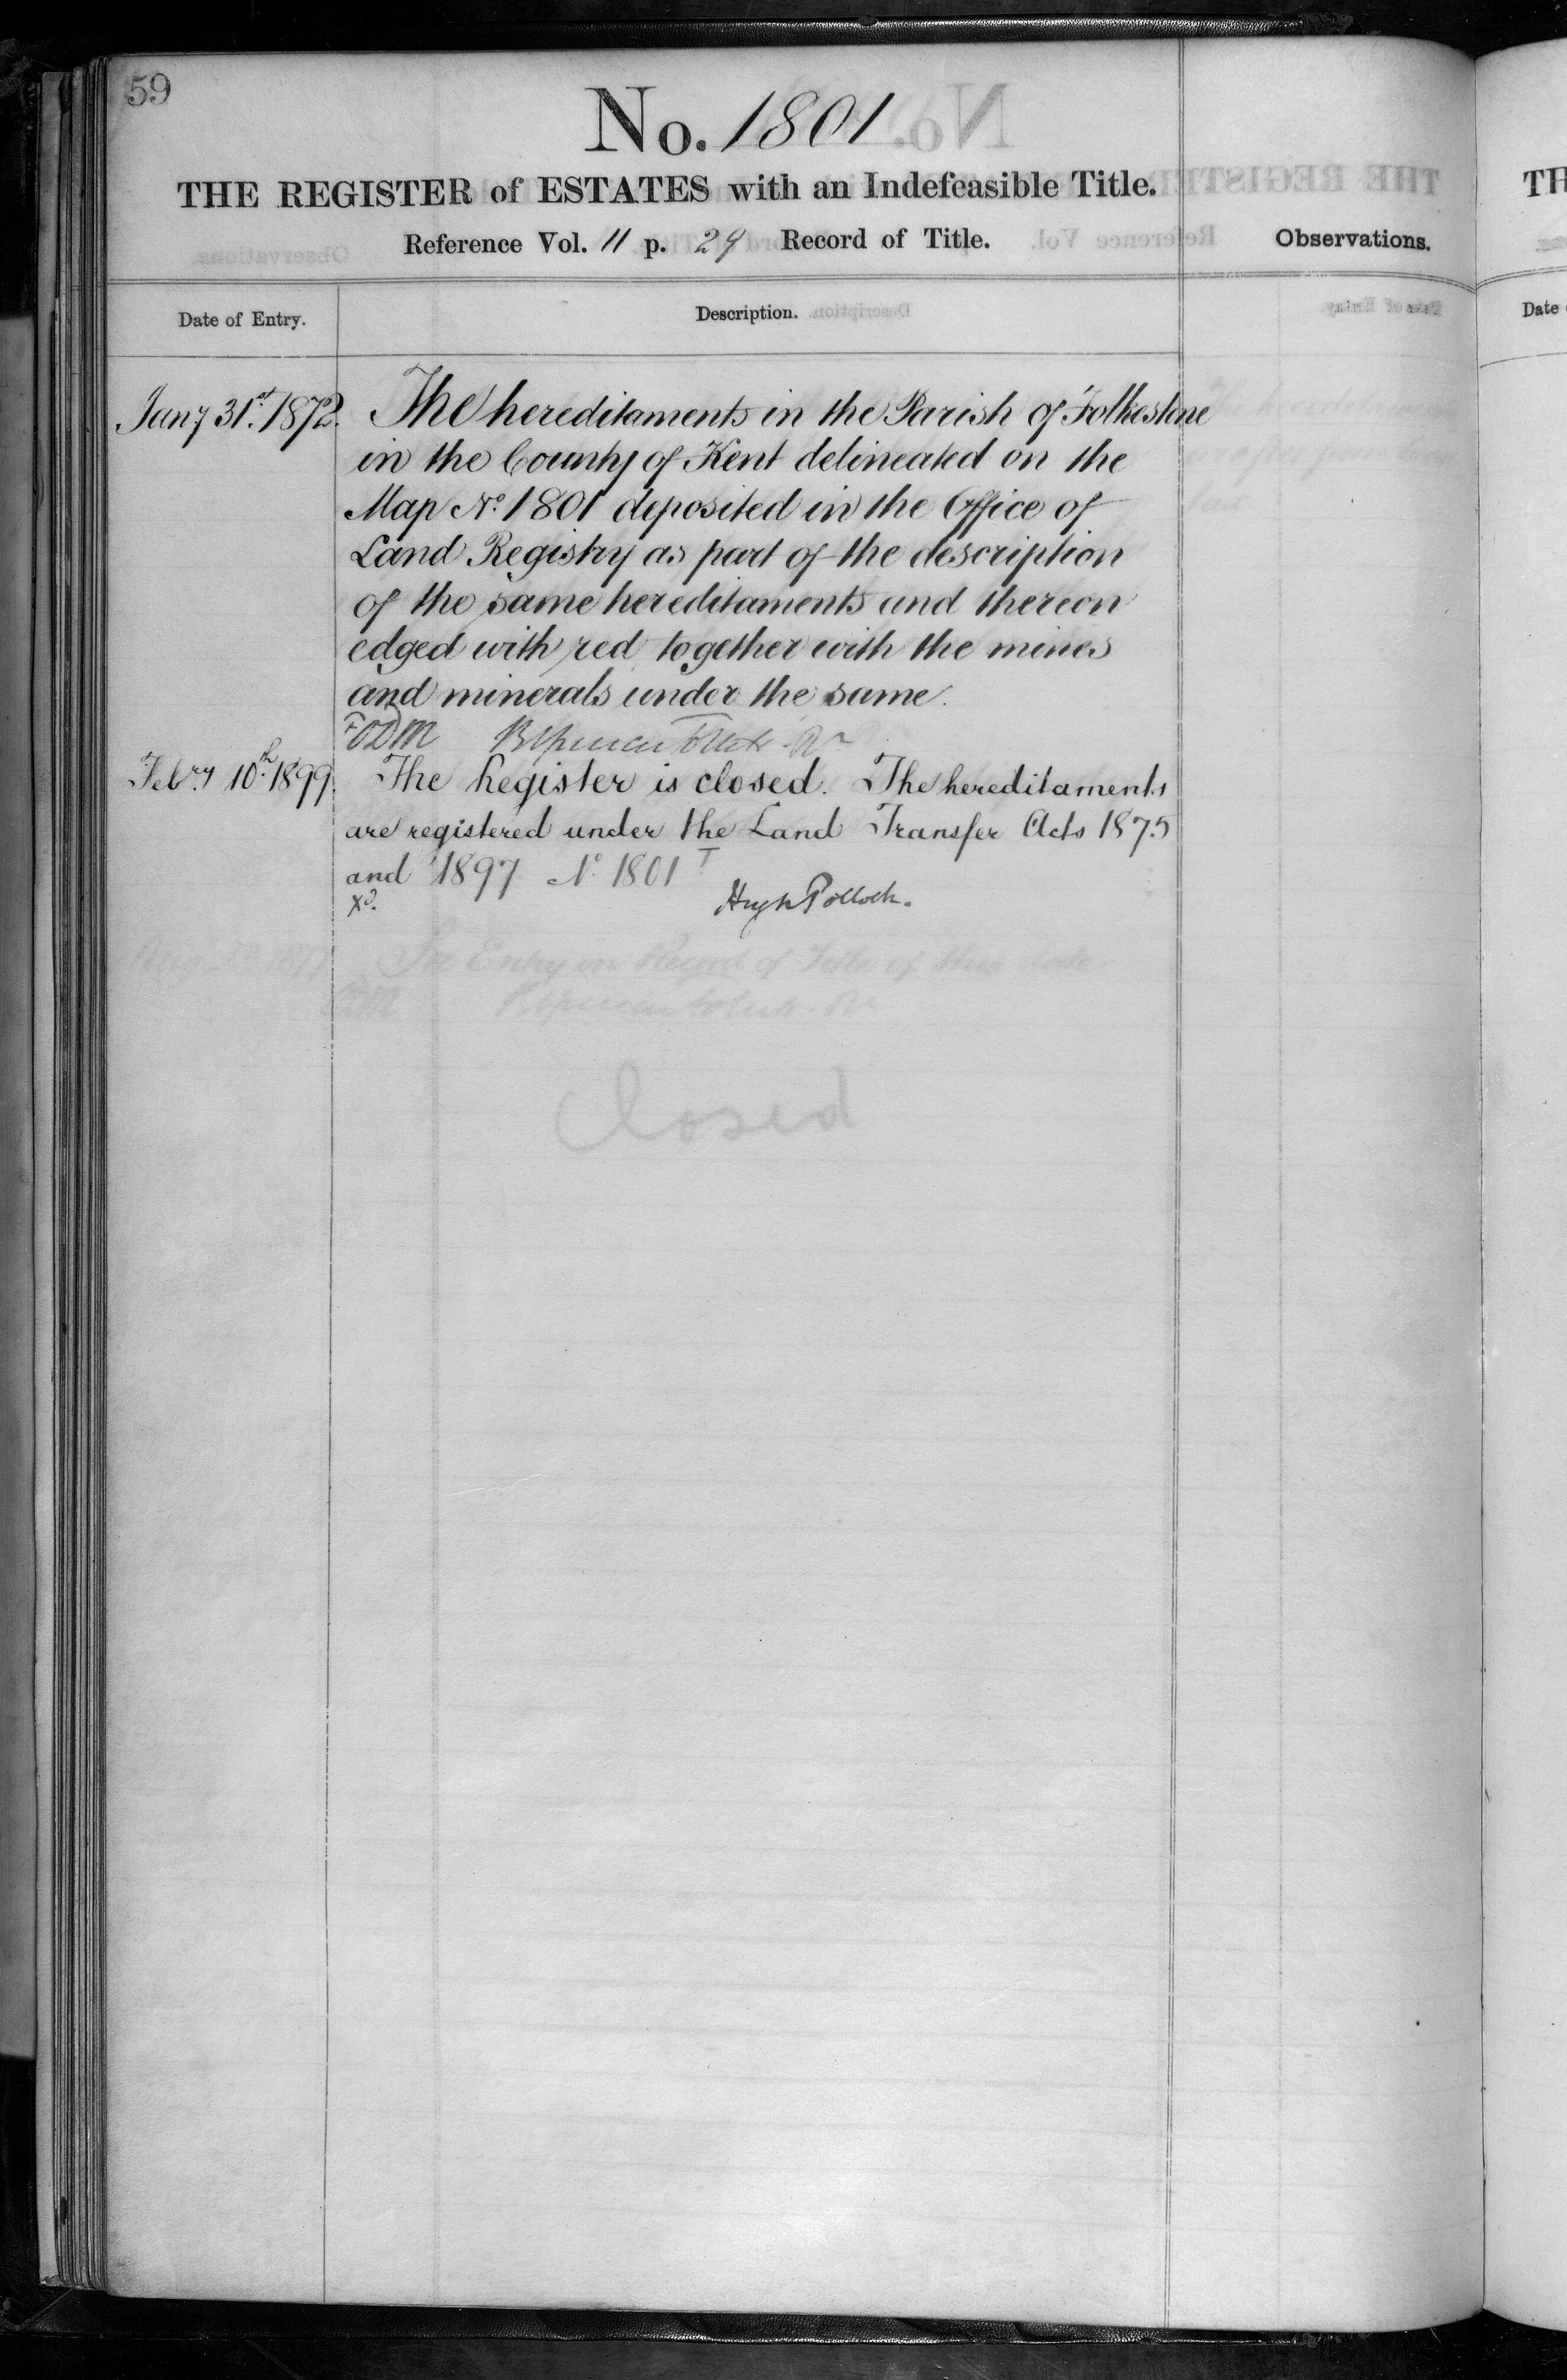 59
No. 1801
THE REGISTER of ESTATES with an Indefeasible Title.
Reference Vol. 11 p. 29 Record of Title.
Observations.
Date of Entry.
Description.
Jany 31st. 1872. The hereditaments in the Parish of Folkestone
in the County of Kent delineated on the
Map No. 1801 deposited in the Office of
Land Registry as part of the description
of the same hereditaments and thereon
edged with red together with the mines
and minerals under the same.
Febry 10th. 1899. The Register is closed. The hereditaments
are registered under the Land Transfer Acts 1875
and 1897 No. 1801 T
Hugh Pollock.
See Entry on Record of Title of this date
Closed
TH
Date